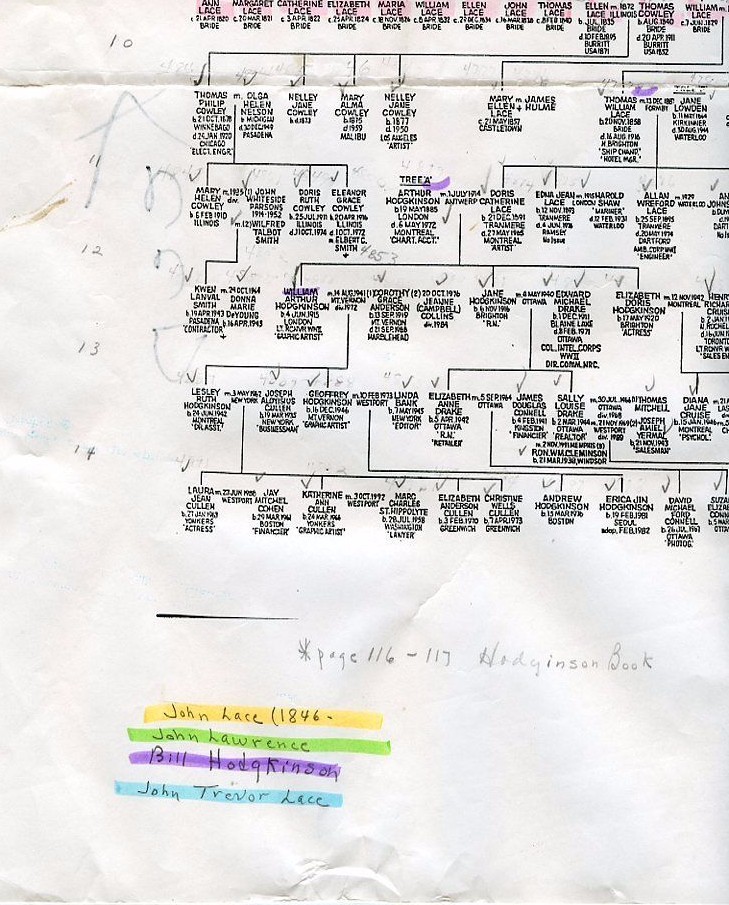 ANN LACE c.21APR 1820 BRIDE
MARGARET LACE c.20MAR 1821 BRIDE
CATHERINE LACE c.3APR 1822 BRIDE
ELIZABETH LACE c.25APR 1824 BRIDE
MARIA LACE c.18NOV 1826 BRIDE
WILLIAM LACE BRIDE
ELLEN LACE BRIDE
JOHN LACE BRIDE
THOMAS LACE BRIDE
ELLEN m. 1872 LACE ILLINOIS b. JUL. 1835 BRIDE d.10FEB1915 BURRITT USA1871
THOMAS COWLEY b.AUG.1840 BRIDE d.20 APR 1911 BURRITT USA 1852
WILLIAM LACE BRIDE
10
THOMAS PHILIP COWLEY b.21OCT.1878 WINNEBAGO d.24JAN 1970 CHICAGO 'ELECT. ENGR.'
m. OLGA HELEN NELSON b. MICHIGAN d.30DEC1949 PASADENA
NELLEY JANE COWLEY b.1873
MARY ALMA COWLEY b.1875 d.1959 MALIBU
NELLEY JANE COWLEY b.1877 d.1950 LOS ANGELES 'ARTIST'
MARY m. JAMES ELLEN HULME LACE c.21MAY1857 CASTLETOWN
THOMAS WILLIAM LACE b.20NOV.1858 BRIDE d.16AUG 1916 N.BRIGHTON 'SHIP CHAND.' 'HOTEL MGR.'
m.13 DEC 1887 FORMBY
JANE LOWDEN b.11MAY1864 KIRKINNER d.30AUG1944 WATERLOO
11
MARY HELEN COWLEY b.5FEB1910 ILLINOIS
m.1935(1) JOHN div. WHITESIDE PARSONS 1914-1952
m.(2)WILFRED TALBOT SMITH
DORIS RUTH COWLEY b.25JUL.1911 ILLINOIS d.1OCT.1974
ELEANOR GRACE COWLEY b.20APR.1916 ILLINOIS d.1OCT.1972 m.ELBERT C. SMITH
TREE 'A'
ARTHUR HODGKINSON b.19 MAY1885 LONDON d.6 MAY1972 MONTREAL 'CHART. ACCT.'
m.1JULY1914 ANTWERP
DORIS CATHERINE LACE b.21DEC.1891 TRANMERE d.27MAY1985 MONTREAL 'ARTIST'
EDNA JEAN LACE b.12NOV.1893 TRANMERE d.4 JUN.1976 RAMSEY No Issue
m.1915 LONDON
HAROLD SHAW 'MARINER' d.12 FEB.1931 WATERLOO
ALLAN WREFORD LACE b.25 SEP.1895 TRANMERE d.20MAY1974 DARTFORD AMB.CORP WWI 'ENGINEER'
m.1929 WATERLOO
12
4853
KWEN LANVAL SMITH b.19APR1943 PASADENA 'CONTRACTOR'
m.24OCT1964 DONNA MARIE DeYOUNG b.16APR.1943
WILLIAM ARTHUR HODGKINSON b.4JUN.1915 LONDON LT. RCNVR WWII 'GRAPHIC ARTIST'
m.14 AUG1941(1) MT.VERNON div.1972
DOROTHY GRACE ANDERSON b.13 SEP.1919 MT.VERNON d.21SEP.1988 MARBLEHEAD
(2) 20 OCT.1976 JEANNE (CAMPBELL) COLLINS div.1984
JANE HODGKINSON b.6 NOV.1916 BRIGHTON 'R.N.'
m.4MAY1940 OTTAWA
EDWARD MICHAEL DRAKE b.1DEC.1911 BLAINE LAKE d.8FEB.1971 OTTAWA COL.INTEL.CORPS WWII DIR.COMM.NRC.
ELIZABETH DORIS HODGKINSON b.17MAY1920 BRIGHTON 'ACTRESS'
m.12 NOV.1942 MONTREAL
13
LESLEY RUTH HODGKINSON b.24JUN.1942 MONTREAL
m.3MAY1962 NEW YORK
JOSEPH ALOYSIUS CULLEN b.19 MAR.1935 NEW YORK 'BUSINESSMAN'
GEOFFREY HODGKINSON b.16 DEC.1946 MT.VERNON 'GRAPHIC ARTIST'
m.10FEB1973 WESTPORT
LINDA BANK b.7MAY1945 NEW YORK 'EDITOR'
ELIZABETH ANNE DRAKE b.5APR.1942 OTTAWA 'R.N.' 'RETAILER'
m.5SEP.1964 OTTAWA
JAMES DOUGLAS CONNELL b.4FEB.1941 KINGSTON 'FINANCIER'
SALLY LOUISE DRAKE b.2MAR.1944 OTTAWA 'REALTOR'
m.2NOV.1991MEMPHIS(3) RON.WM.CLEMINSON b.21MAR.1938,WINDSOR
THOMAS MITCHELL
JOSEPH AMIEL YERMAL b.21NOV.1943 'SALESMAN'
DIANA JANE CRUISE MONTREAL 'PSYCHOL.'
14
LAURA JEAN CULLEN b.27JAN.1963 YONKERS 'ACTRESS'
m.27JUN.1988 WESTPORT
JAY MITCHEL COHEN b.29MAR.1961 BOSTON 'FINANCIER'
KATHERINE ANN CULLEN b.24MAR.1966 YONKERS 'GRAPHIC ARTIST'
m.3OCT.1992 WESTPORT
MARC CHARLES ST.HIPPOLYTE b.28JUL.1958 WASHINGTON 'LAWYER'
ELIZABETH ANDERSON CULLEN b.3FEB.1970 GREENWICH
CHRISTINE WELLS CULLEN b.7APR.1973 GREENWICH
ANDREW HODGKINSON b.15MAR.1976 BOSTON
ERICA JIN HODGKINSON b.19FEB.1981 SEOUL adop.FEB.1982
DAVID MICHAEL FORD CONNELL b.26JUL.1967 OTTAWA 'PHOTOG.'
*page 116-117 Hodginson Book
John Lace (1846-
John Lawrence
Bill Hodgkinson
John Trevor Lace